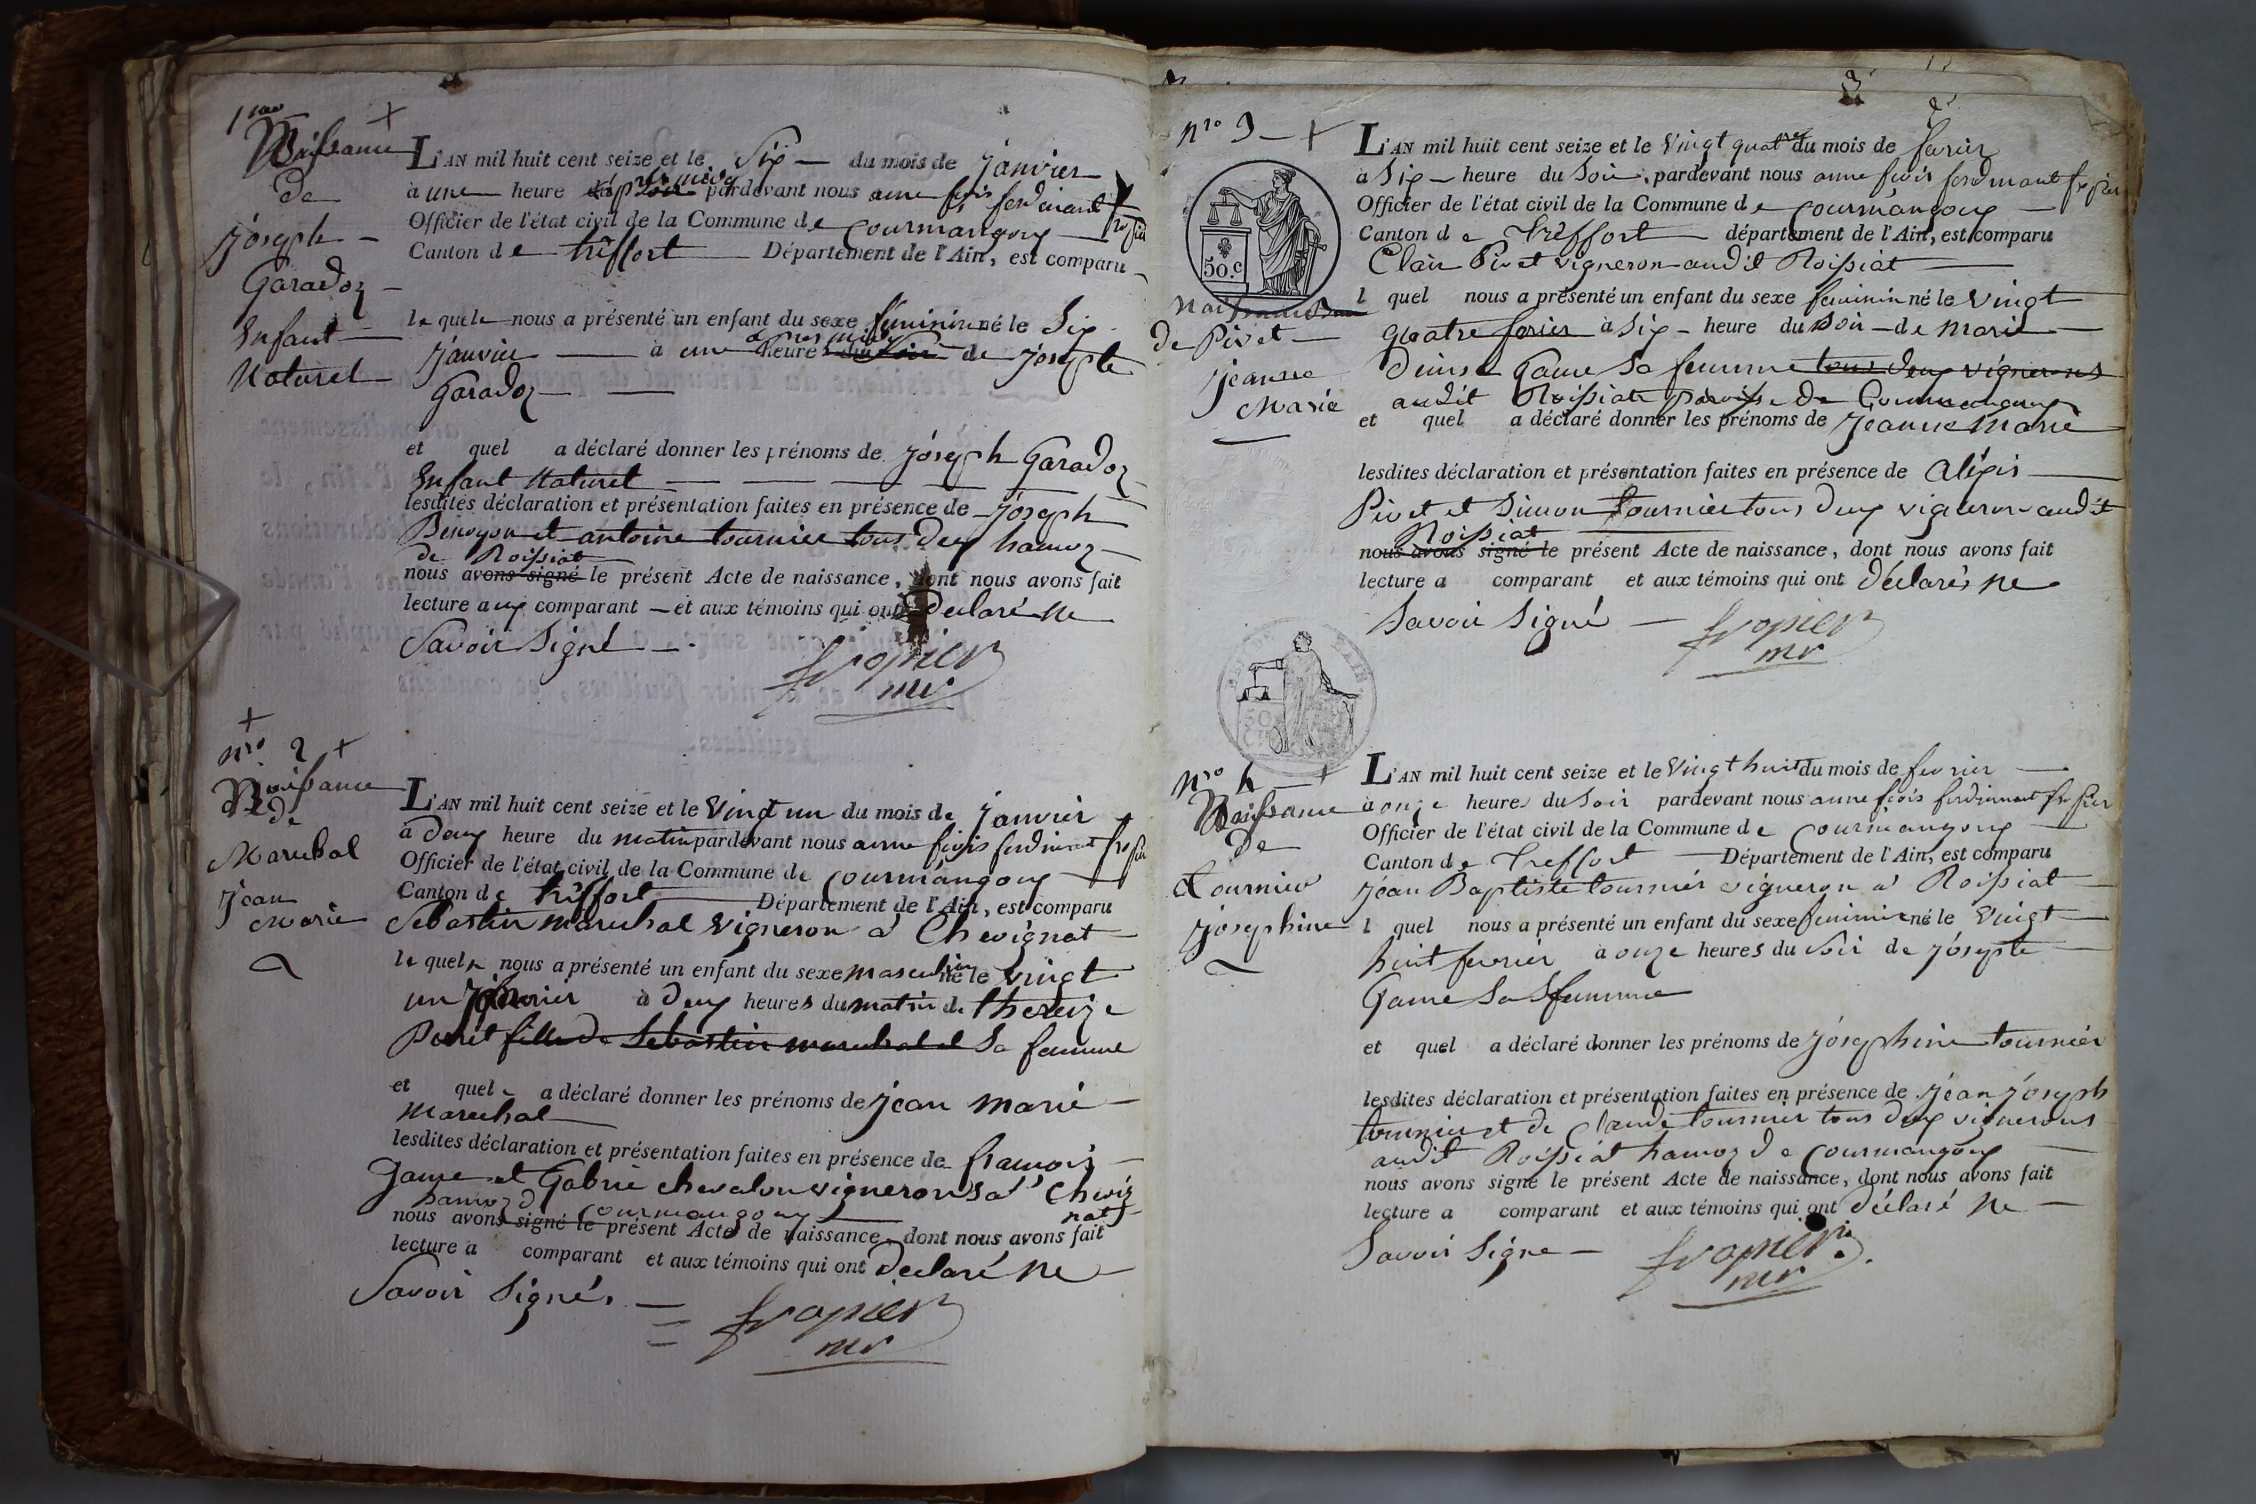 1
Naissance
de
jóseph
Garadoz
Enfant
Naturel
L'AN mil huit cent seize et le Six du mois de janvier
à une heure pardevant nous anne fçois ferdinant fropier
Officier de l'état civil de la Commune de Courmangoux
Canton de treffort Département de l'Ain, est comparu
le quele nous a présenté un enfant du sexe feminin né le Six
janvier à une heure de josepte
Garadoz
et quel a déclaré donner les prénoms de jóseph Garadoz
Enfant Naturel
lesdites déclaration et présentation faites en présence de jóseph
Benoyon et antoine tournier tous deux hamoz
de Roissiat
nous avons signé le présent Acte de naissance, dont nous avons fait
lecture aux comparant et aux témoins qui ont declaré ne
Savoir Signé
fropier
mr
nro 2
Naissance
de
Marechal
jean
Marie
L'AN mil huit cent seize et le Vingt un du mois de janvier
à deux heure du matin pardevant nous anne fçois ferdinant fropier
Officier de l'état civil de la Commune de Courmangoux
Canton de treffort Département de l'Ain, est comparu
Sebastien marechal vigneron à Chevignat
le quele nous a présenté un enfant du sexe masculin né le vingt
un janvier à deux heures du matin de thereize
Perret fille de Sebastien marechal et Sa femme
et quele a déclaré donner les prénoms de jean marie
Marechal
lesdites déclaration et présentation faites en présence de francois
Game et Gabrie chevalon vignerons à Chevig
nat
hamoz de Courmangoux
nous avons signé le présent Acte de naissance, dont nous avons fait
lecture a comparant et aux témoins qui ont declaré ne
Savoir Signés
fropier
mr
nro 3
50.c
Naissance
de Pivet
jeanne
Marie
L'AN mil huit cent seize et le Vingt quatre du mois de fevrier
à Six heure du Soir pardevant nous anne fçois ferdinant fropier
Officier de l'état civil de la Commune de Courmangoux
Canton de treffort département de l'Ain, est comparu
Clair Pivet vigneron audit Roissiat
l quel nous a présenté un enfant du sexe feminin né le vingt
quatre fevrier à Six heure du Soir de Marie
denise Game Sa femme tous deux vignerons
audit Roissiat paroisse de Courmangoux
et quel a déclaré donner les prénoms de jeanne Marie
lesdites déclaration et présentation faites en présence de Aléxis
Pivet et Simon tournier tous deux vigneron audit
Roissiat
nous avons signé le présent Acte de naissance, dont nous avons fait
lecture a comparant et aux témoins qui ont déclarés ne
Savoir Signé
fropier
mr
nro 4
Naissance
de
tournier
jósephine
L'AN mil huit cent seize et le Vingt huit du mois de fevrier
à onze heures du Soir pardevant nous anne fçois ferdinant fropier
Officier de l'état civil de la Commune de Courmangoux
Canton de treffort Département de l'Ain, est comparu
jean Baptiste tournier vigneron à Roissiat
l quel nous a présenté un enfant du sexe feminin né le Vingt
huit fevrier à onze heures du Soir de jósepte
Game Sa femme
et quel a déclaré donner les prénoms de jósephine tournier
lesdites déclaration et présentation faites en présence de jean jóseph
tournier et de Claude tournier tous deux vignerons
audit Roissiat hamoz de Courmangoux
nous avons signé le présent Acte de naissance, dont nous avons fait
lecture a comparant et aux témoins qui ont déclaré ne
Savoir Signe
fropier
mr